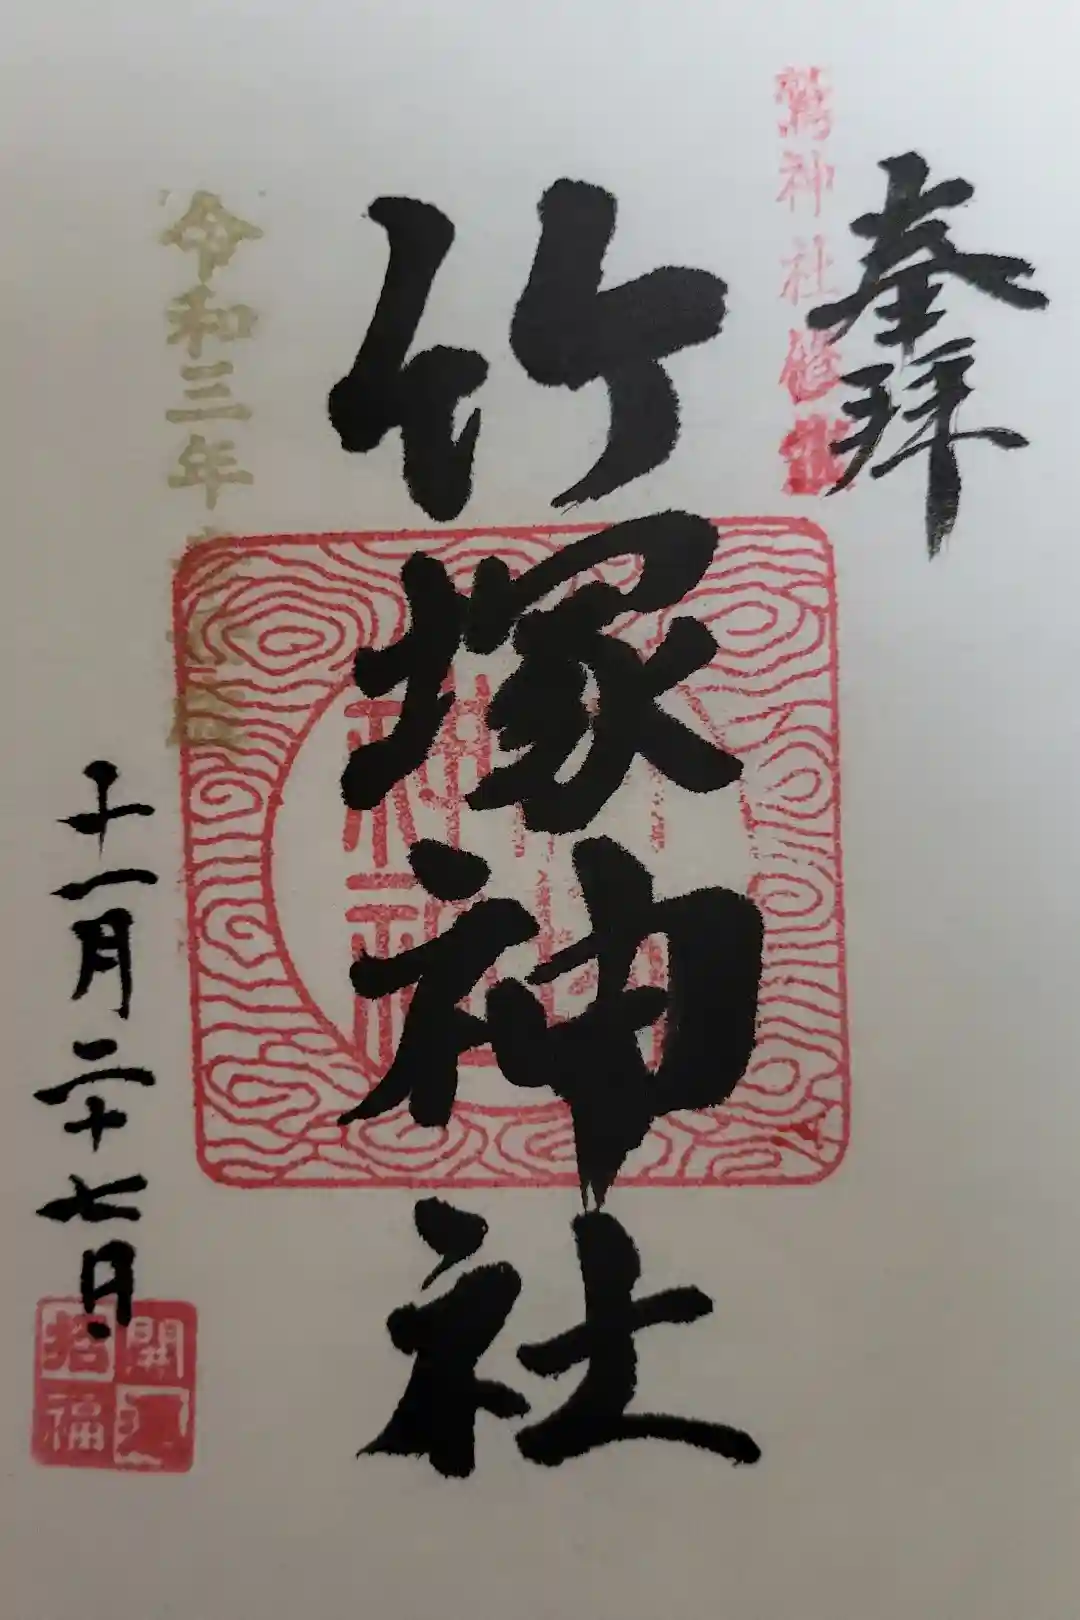 奉拝
鷲神社
竹塚神社
令和三年
十一月二十七日
開運
招福